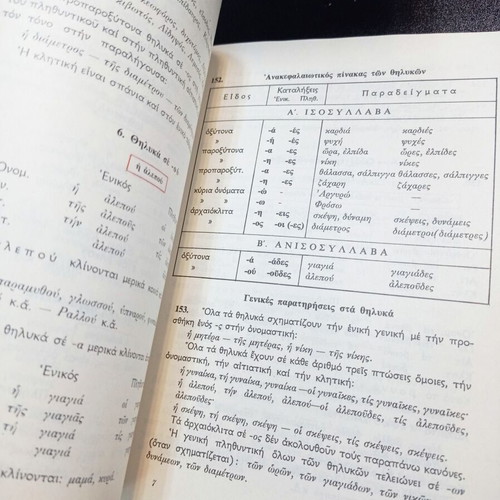 τοῦ πληθυντικοῦ καί στήν
τόν τόνο στήν παραλήγουσα:
ἡ διάμετρος — τῆς διαμέτρου
Ἡ κλητική εἶναι σπάνια καί στόν
6. Θηλυκά σέ -ού
ἡ ἀλεπού
Ἑνικός
Ὀνομ. ἡ ἀλεπού
τῆς ἀλεποῦς
τήν ἀλεπού
ἀλεπού
ἀλεπού κλίνονται μερικά
παραμυθού, γλωσσού, ὑπναρού,
κ.ἄ. — Ραλλού κ.ἄ.
θηλυκά σέ -ά μερικά κλίνονται
Ἑνικός
ἡ γιαγιά
τῆς γιαγιᾶς
τή γιαγιά
γιαγιά
κλίνονται: μαμά, κυρά.
152. Ἀνακεφαλαιωτικός πίνακας τῶν θηλυκῶν
Εἶδος Καταλήξεις Παραδείγματα
Ἑνικ. Πληθ.
Α΄. ΙΣΟΣΥΛΛΑΒΑ
ὀξύτονα -ά -ές καρδιά καρδιές
» -ή -ές ψυχή ψυχές
παροξύτονα -α -ες ὥρα, ἐλπίδα ὧρες, ἐλπίδες
» -η -ες νίκη νίκες
προπαροξύτ. -α -ες θάλασσα, σάλπιγγα θάλασσες, σάλπιγγες
» -η -ες ζάχαρη ζάχαρες
κύρια ὀνόματα -ώ - Ἀργυρώ —
» -ω - Φρόσω —
ἀρχαιόκλιτα -η -εις σκέψη, δύναμη σκέψεις, δυνάμεις
» -ος -οι (-ες) διάμετρος διάμετροι (διάμετρες)
Β΄. ΑΝΙΣΟΣΥΛΛΑΒΑ
ὀξύτονα -ά -άδες γιαγιά γιαγιάδες
» -ού -οῦδες ἀλεπού ἀλεποῦδες
Γενικές παρατηρήσεις στά θηλυκά
153. Ὅλα τά θηλυκά σχηματίζουν τήν ἑνική γενική μέ τήν προ-
σθήκη ἑνός -ς στήν ὀνομαστική:
ἡ μητέρα — τῆς μητέρας, ἡ νίκη — τῆς νίκης.
Ὅλα τά θηλυκά ἔχουν σέ κάθε ἀριθμό τρεῖς πτώσεις ὅμοιες, τήν
ὀνομαστική, τήν αἰτιατική καί τήν κλητική:
ἡ γυναίκα, τή γυναίκα, γυναίκα — οἱ γυναῖκες, τίς γυναῖκες, γυναῖκες·
ἡ ἀλεπού, τήν ἀλεπού, ἀλεπού — οἱ ἀλεποῦδες, τίς ἀλεποῦδες,
ἀλεποῦδες·
ἡ σκέψη, τή σκέψη, σκέψη — οἱ σκέψεις, τίς σκέψεις, σκέψεις.
Τά ἀρχαιόκλιτα σέ -ος δέν ἀκολουθοῦν τούς παραπάνω κανόνες.
Ἡ γενική πληθυντική ὅλων τῶν θηλυκῶν τελειώνει σέ -ων
(ὅταν σχηματίζεται): τῶν ὡρῶν, τῶν γιαγιάδων, τῶν
δυνάμεων, τῶν διαμέτρων.
7